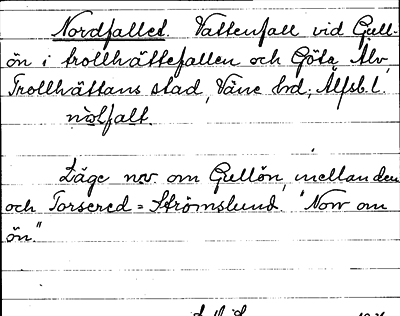 Nordfallet. Vattenfall vid Gull-
ön i trollhättefallen och Göta Älv,
Trollhättans stad, Väne hd; Älfsb. l.
nolfalt.
Läge nv om Gullön, mellan den
och Torsered = Strömslund. "Norr om
ön."